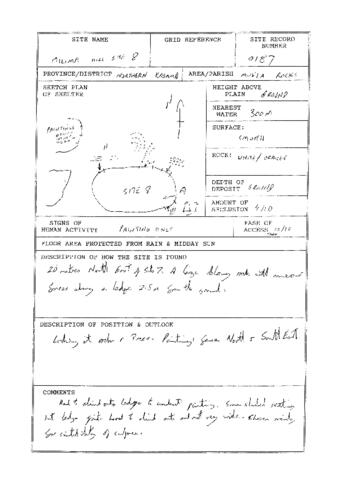 SITE NAME
GRID REFERENCE
SITE RECORD NUMBER
HILL SITE 8
0187
PROVINCE/DISTRICT NORTHERN KASAMA
AREA/PARISH MWELA ROCKS
SKETCH PLAN OF SHELTER
PAINTINGS
N
SITE 8
A
HEIGHT ABOVE PLAIN GROUND
NEAREST WATER 300M
SURFACE:
SMOOTH
ROCK: WHITE/ORANGE
DEPTH OF DEPOSIT GROUND
AMOUNT OF EROSION 4/10
SIGNS OF HUMAN ACTIVITY PAINTING ONLY
EASE OF ACCESS 10/10
FLOOR AREA PROTECTED FROM RAIN & MIDDAY SUN
DESCRIPTION OF HOW THE SITE IS FOUND
20 metres North East of Site 7. A large rock with
along a ledge 2.5m from the ground.
DESCRIPTION OF POSITION & OUTLOOK
Looking at other & Trees. Paintings face North & South East
COMMENTS
Had to climb onto ledge to conduct painting. Some seating
but ledge quite hard to climb onto and not very wide. Chosen mainly
for suitability of surface.